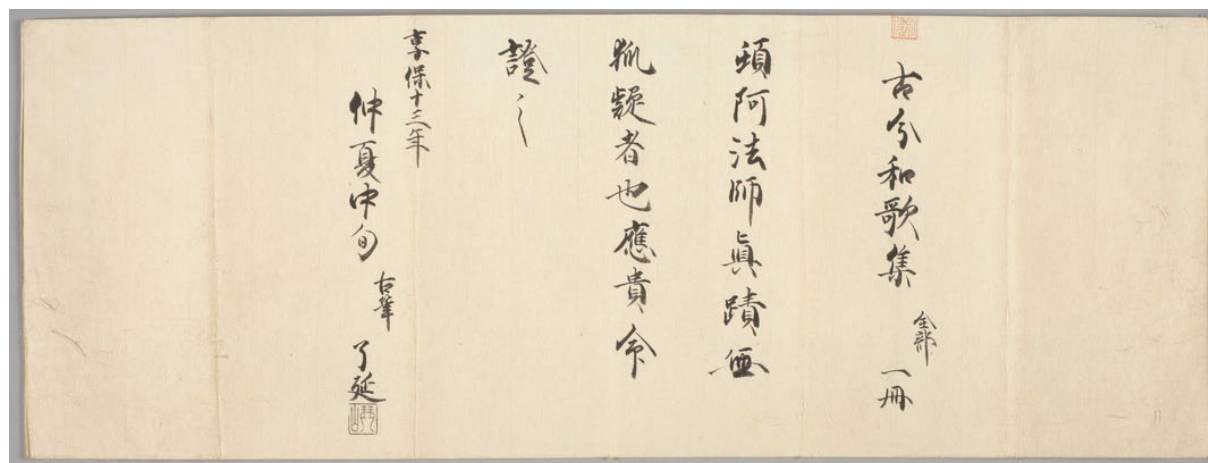 古今和歌集 全部 一冊
頓阿法師眞蹟無
狐疑者也應貴命
證之
享保十三年
仲夏中旬 古筆 了延